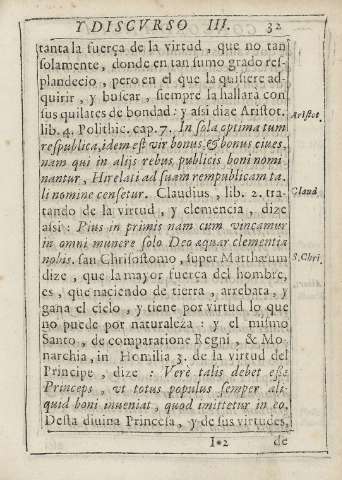 Y DISCVRSO III. 32
tanta la fuerça de la virtud, que no tan
solamente, donde en tan sumo grado res-
plandecio, pero en el que la quisiere ad-
quirir, y buscar, siempre la hallara con
sus quilates de bondad: y assi dize Aristot.
Aristot.
lib. 4. Polithic. cap. 7. In sola optima tum
respublica, idem est vir bonus, & bonus ciues,
nam qui in alijs rebus publicis boni nomi
nantur, Hirelati ad suam rempublicam ta-
li nomine censetur. Claudius, lib. 2. tra-
Claud
tando de la virtud, y clemencia, dize
assi: Pius in primis nam cum vincamur
in omni munere solo Deo aquar clementia
nobis. san Chrisostomo, super Matthæum
S. Chri.
dize, que la mayor fuerça del hombre,
es, que naciendo de tierra, arrebata, y
gana el cielo, y tiene por virtud lo que
no puede por naturaleza: y el mismo
Santo, de comparatione Regni, & Mo-
narchia, in Homilia 3. de la virtud del
Principe, dize: Verè talis debet esse
Princeps, vt totus populus semper ali-
quid boni inueniat, quod imittetur in eo.
Desta diuina Princesa, y de sus virtudes,
I*2 de